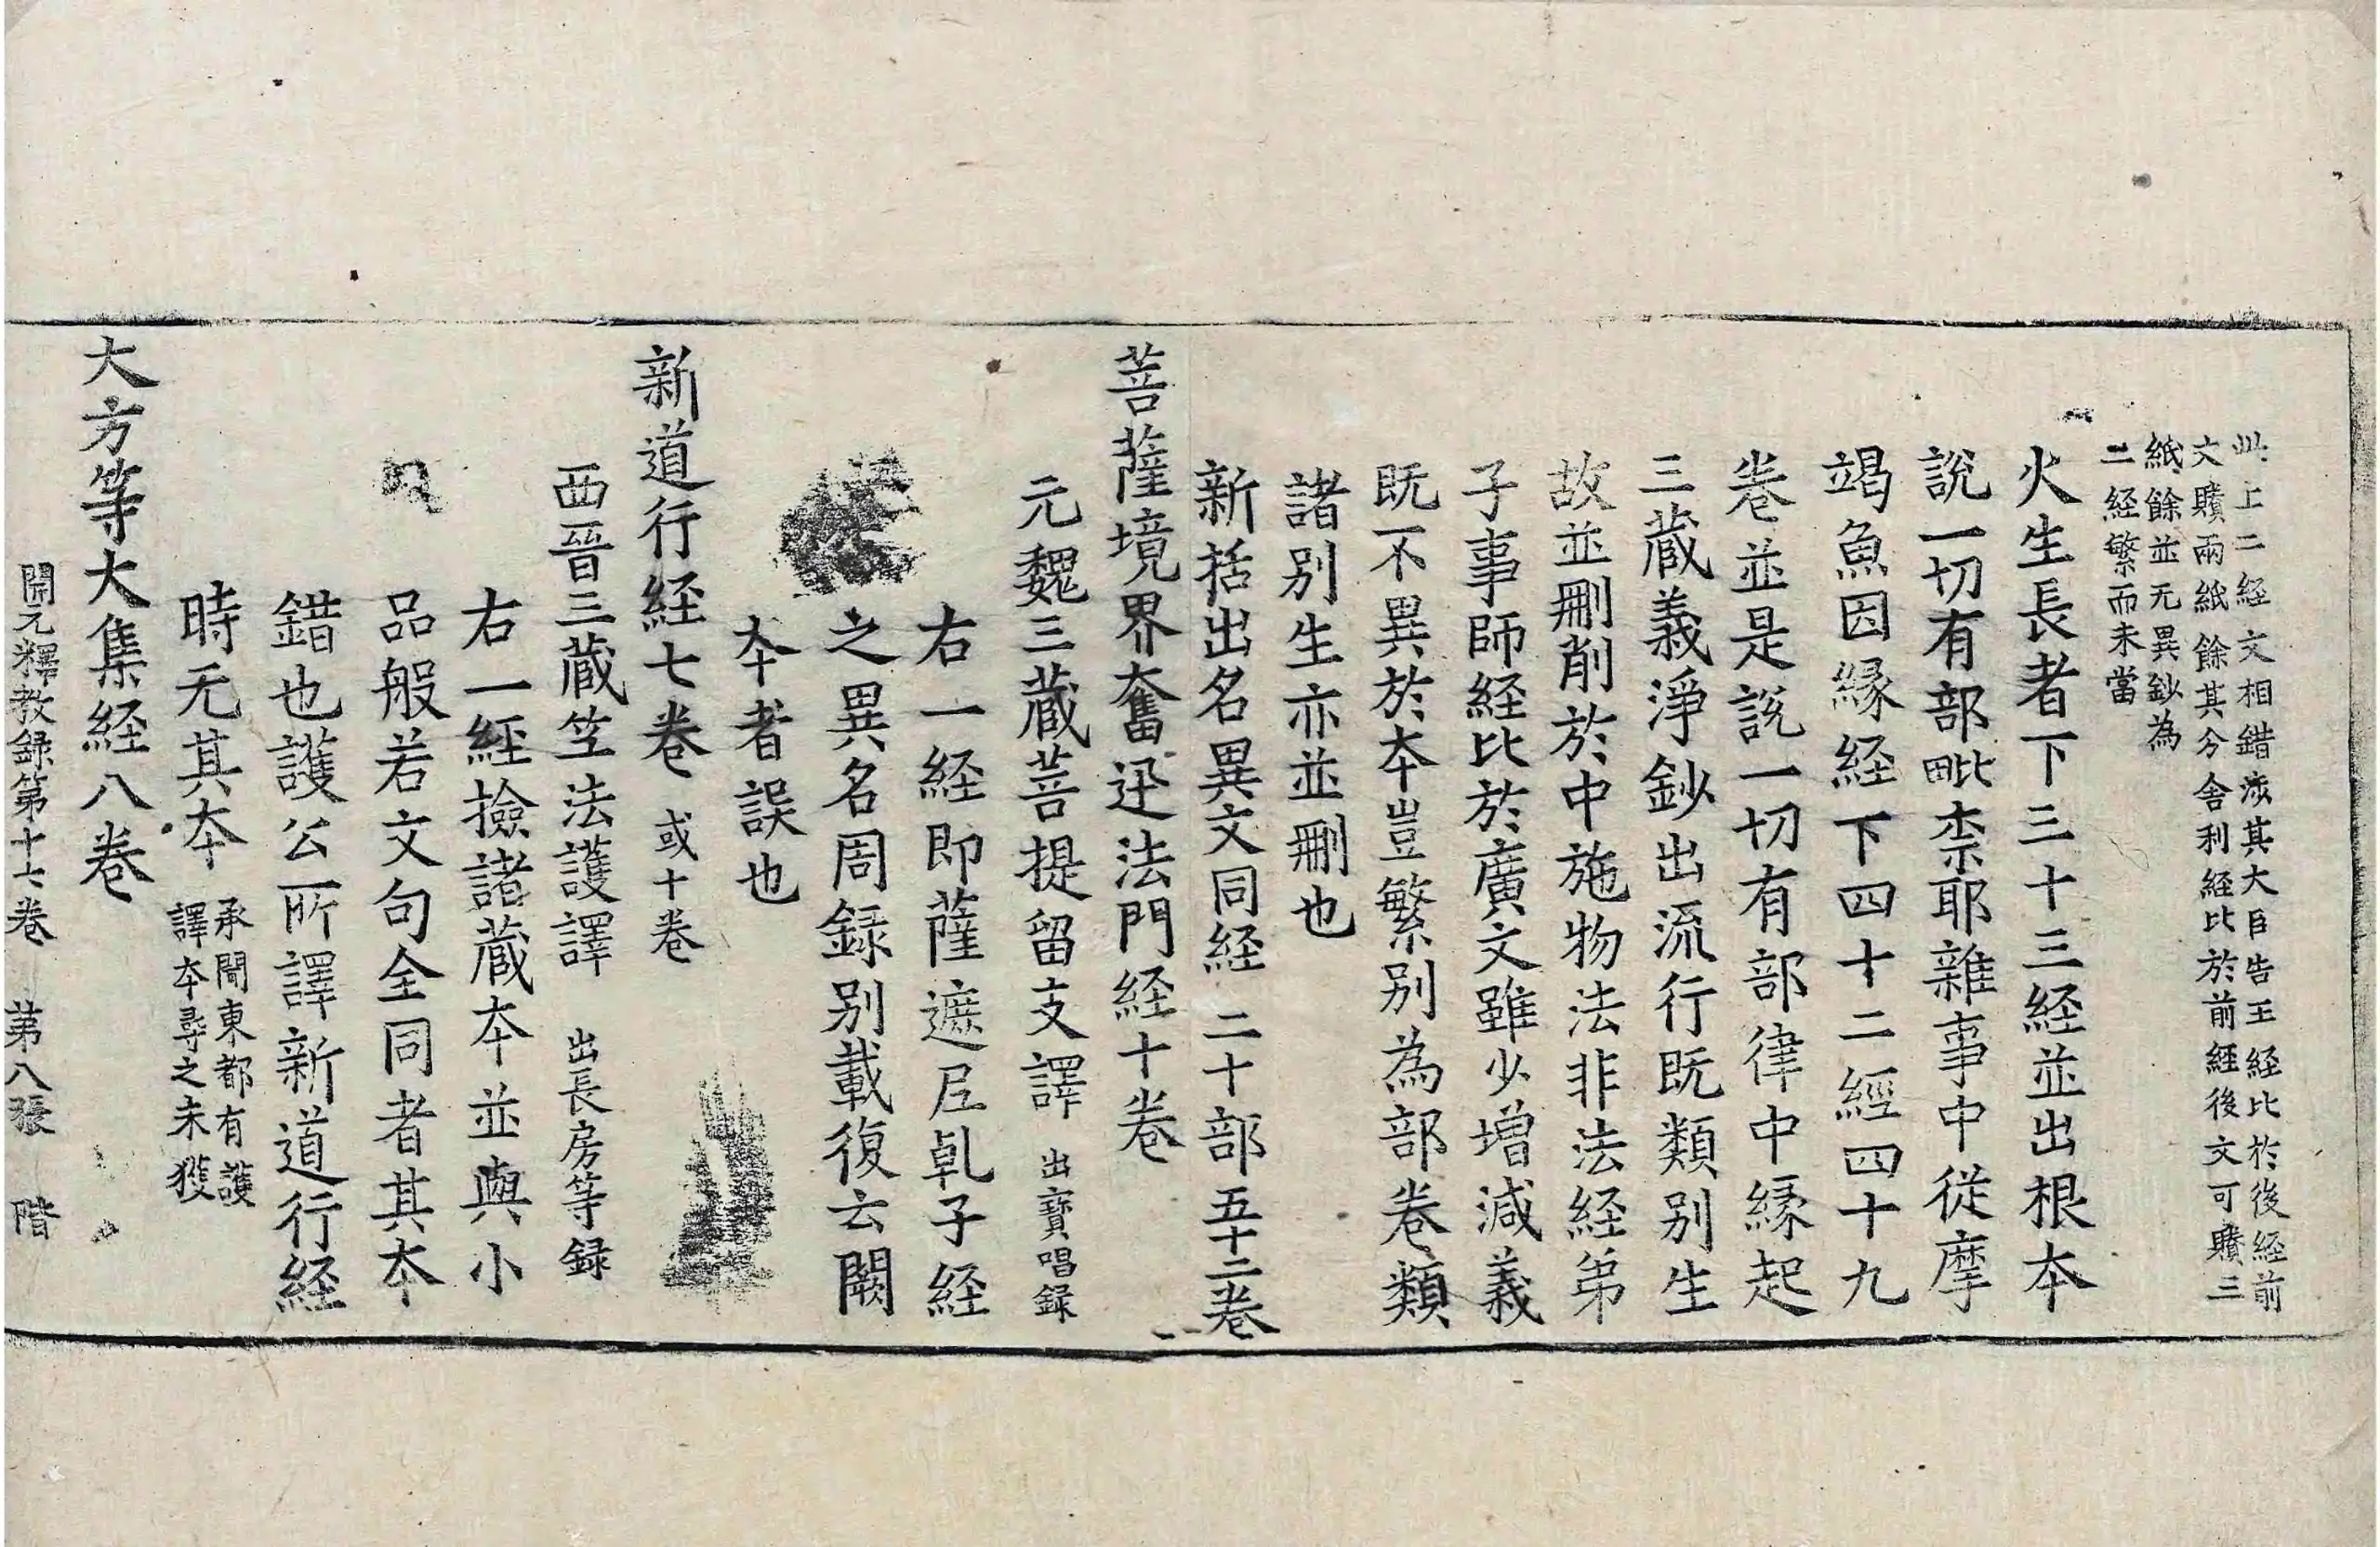 此上二経文相錯涉其大臣告王経比於後経前
文賸兩紙餘其分舍利経比於前経後文可賸三
紙餘並无異鈔為
二経繁而未當
火生長者下三十三経並出根本
說一切有部毗柰耶雜事中從摩
竭魚因緣経下四十二經四十九
卷並是說一切有部律中緣起
三蔵義淨鈔出流行既類別生
故並刪削於中施物法非法経第
子事師経比於廣文雖少增減義
既不異於夲豈繁別為部卷類
諸別生亦並刪也
新括出名異文同経 二十部五十二卷
菩薩境界奮迅法門経十卷
元魏三蔵菩提留支譯 出寶唱録
右一経即薩遮尼乹子経
之異名周録別載復云闕
夲者誤也
新道行経七卷 或十卷
西晉三蔵竺法護譯 出長房等録
右一經撿諸蔵夲並與小
品般若文句全同者其夲
錯也護公所譯新道行経
時无其夲 承聞東都有護
譯夲尋之未獲
大方等大集経八卷
開元釋教録第十六卷 第八張 階